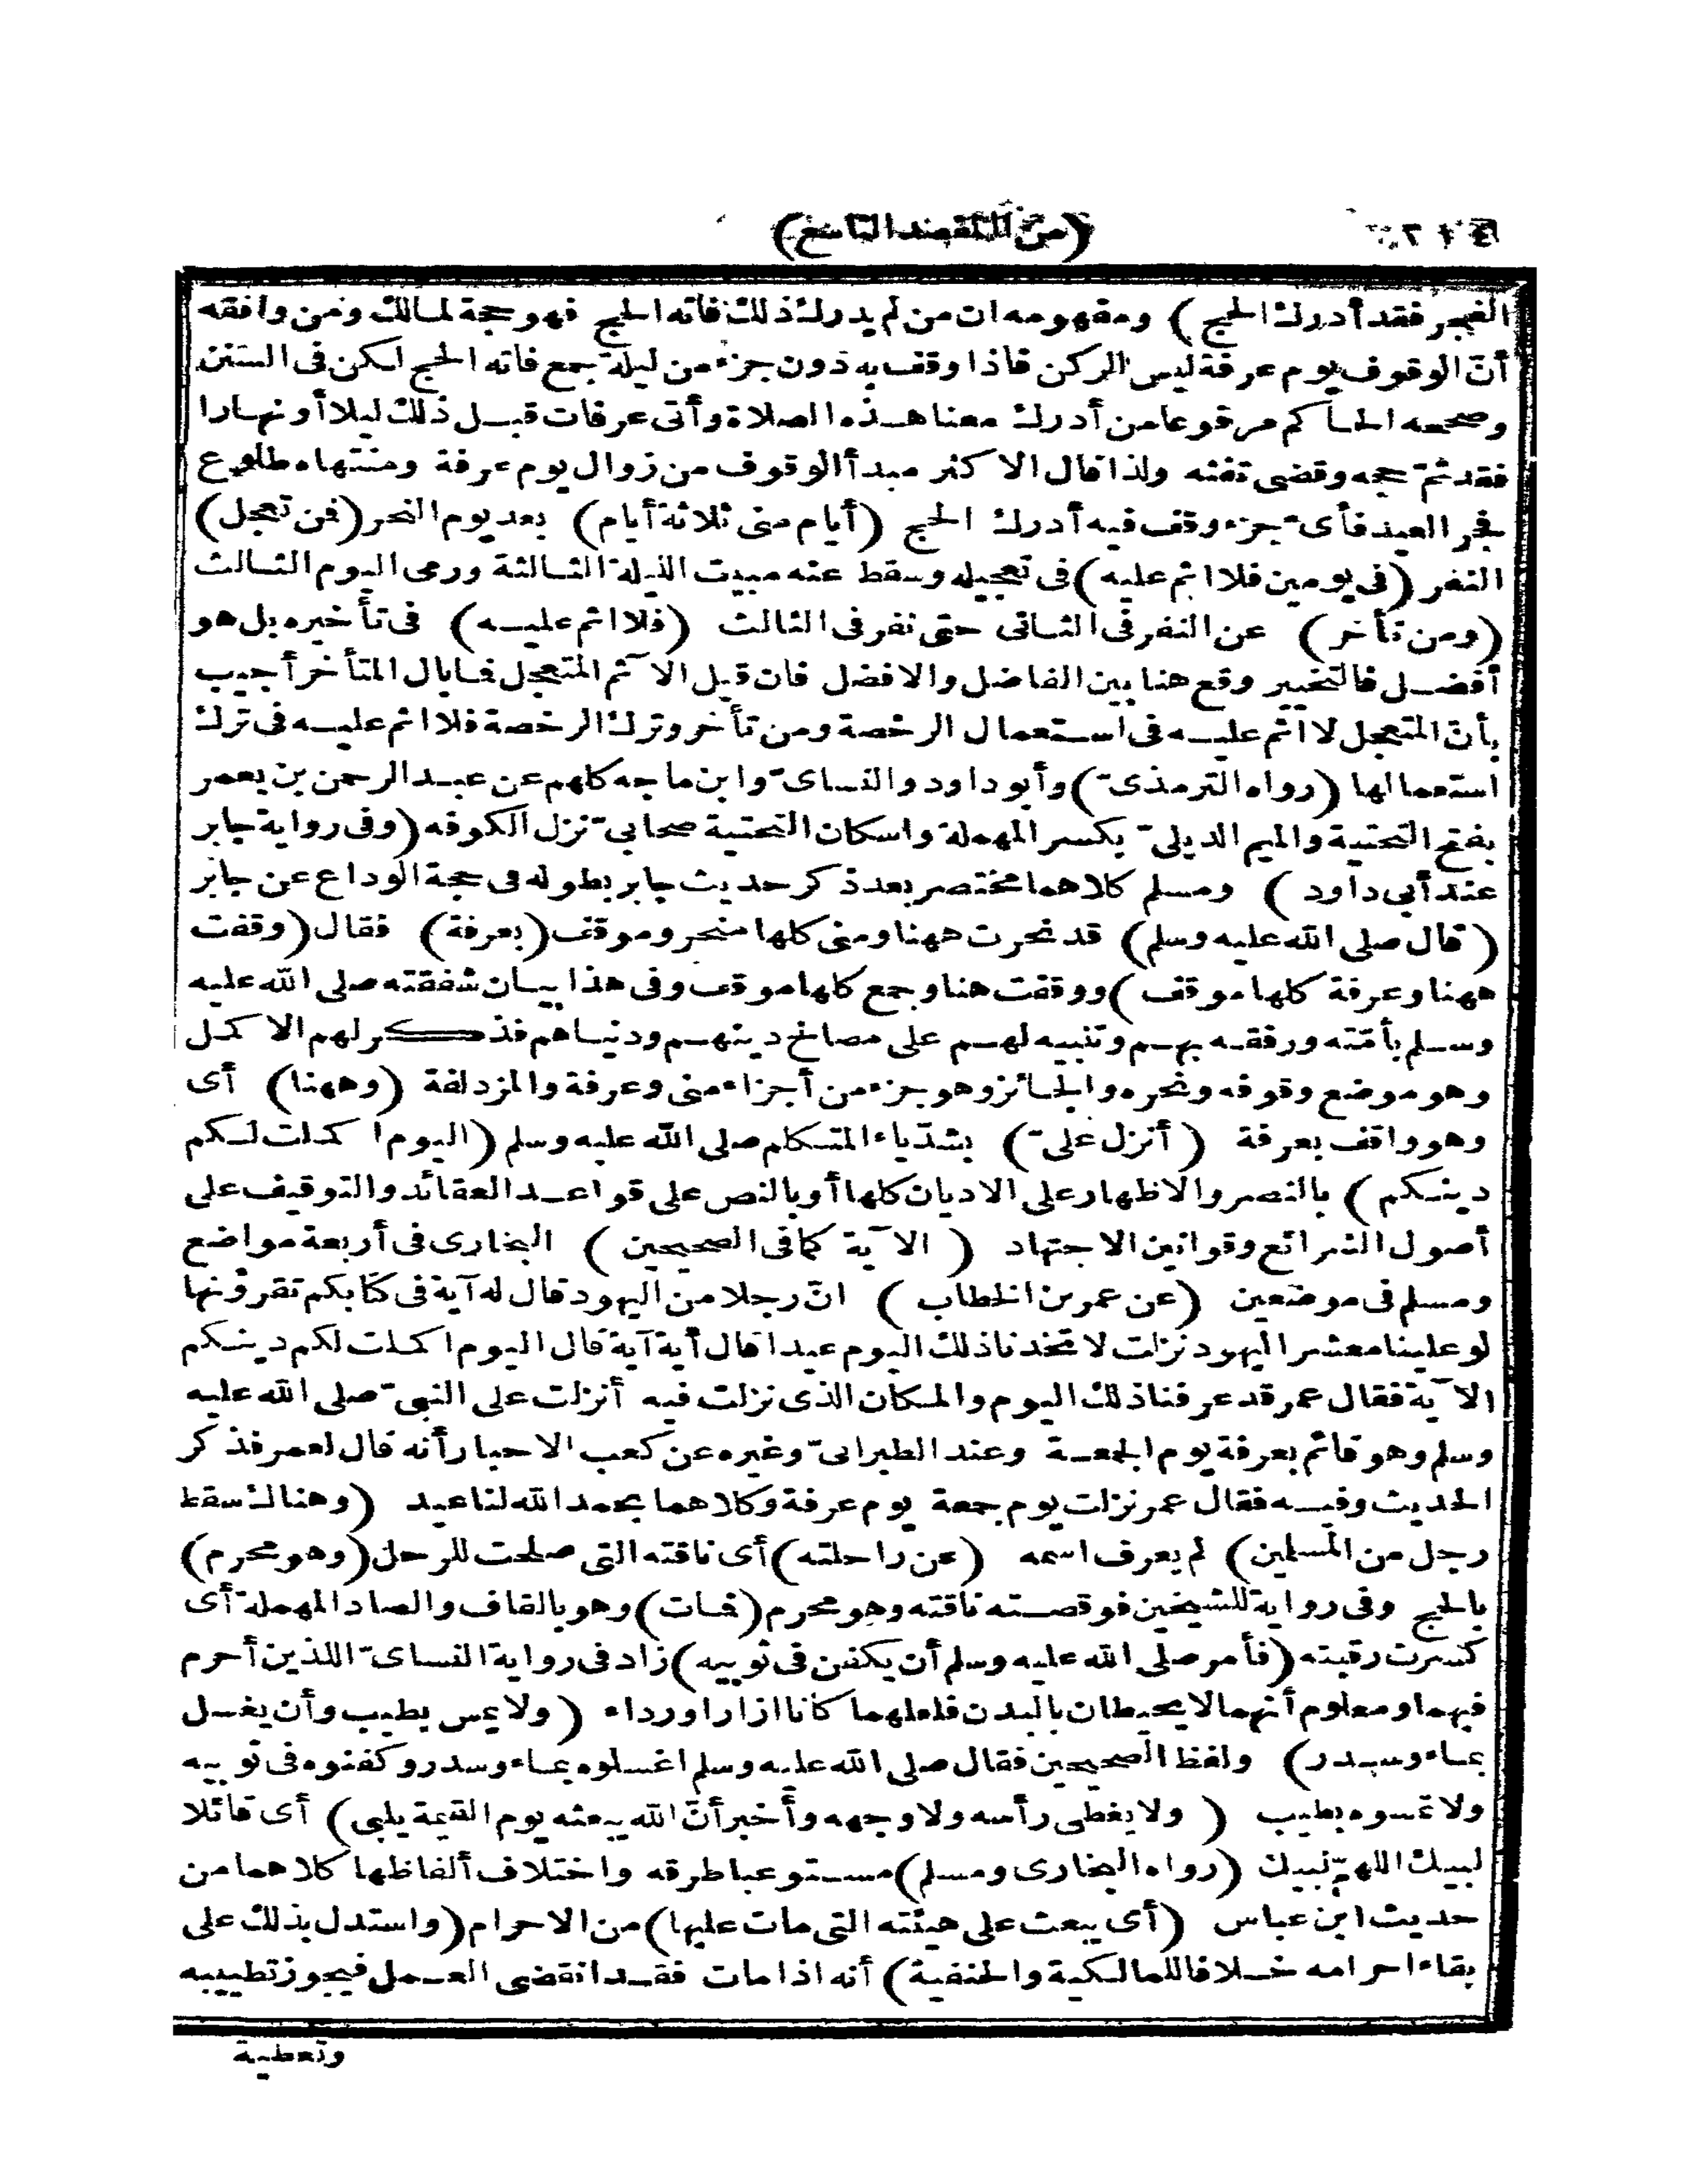 (من المقصد التاسع)
الفجر فقد أدرك الحج ) ومفهومه ان من لم يدرك ذلك فاته الحج فهو حجة لمالك ومن وافقه
أنّ الوقوف يوم عرفة ليس الركن فاذا وقف به دون جزء من ليلة جمع فاته الحج لكن فى السنن
وصححه الحاكم مرفوعا من أدرك معنا هذه الصلاة وأتى عرفات قبل ذلك ليلا أو نهارا
فقد تمّ حجه وقضى تفثه ولذا قال الاكثر مبدأ الوقوف من زوال يوم عرفة ومنتهاه طلوع
فجر العيد فأىّ جزء وقف فيه أدرك الحج (أيام منى ثلاثة أيام) بعد يوم النحر (فمن تعجل)
النفر (فى يومين فلا اثم عليه) فى تعجيله وسقط عنه مبيت الليلة الثالثة ورمى اليوم الثالث
(ومن تأخر) عن النفر فى الثانى حتى نفر فى الثالث (فلا اثم عليه) فى تأخيره بل هو
أفضل فالتخيير وقع هنا بين الفاضل والافضل فان قيل الآثم المتعجل فما بال المتأخر أجيب
بأنّ المتعجل لا اثم عليه فى استعمال الرخصة ومن تأخر وترك الرخصة فلا اثم عليه فى ترك
استعمالها (رواه الترمذىّ) وأبو داود والنساىّ وابن ماجه كلهم عن عبد الرحمن بن يعمر
بفتح التحتية والميم الديلىّ بكسر المهملة واسكان التحتية صحابىّ نزل الكوفه (وفى رواية جابر
عند أبى داود ) ومسلم كلاهما مختصر بعد ذكر حديث جابر بطوله فى حجة الوداع عن جابر
(قال صلى الله عليه وسلم) قد نحرت ههنا ومنى كلها منحر وموقف (بعرفة) فقال (وقفت
ههنا وعرفة كلها موقف ) ووقفت هنا وجمع كلها موقف وفى هذا بيان شفقته صلى الله عليه
وسلم بأمّته ورفقه بهم وتنبيه لهم على مصالح دينهم ودنياهم فذكر لهم الاكمل
وهو موضع وقوفه ونحره والجائز وهو جزء من أجزاء منى وعرفة والمزدلفة (وههنا) أى
وهو واقف بعرفة (أنزل علىّ) بشدّ ياء المتكلم صلى الله عليه وسلم (اليوم اكملت لكم
دينكم ) بالنصر والاظهار على الاديان كلها أو بالنص على قواعد العقائد والتوقيف على
أصول الشرائع وقوانين الاجتهاد ( الآية كما فى الصحيحين ) البخارى فى أربعة مواضع
ومسلم فى موضعين (عن عمر بن الخطاب ) انّ رجلا من اليهود قال له آية فى كتابكم تقرؤنها
لو علينا معشر اليهود نزلت لاتخذنا ذلك اليوم عيدا قال أية آية قال اليوم اكملت لكم دينكم
الآية فقال عمر قد عرفنا ذلك اليوم والمكان الذى نزلت فيه أنزلت على النبىّ صلى الله عليه
وسلم وهو قائم بعرفة يوم الجمعة وعند الطبرانىّ وغيره عن كعب الاحبار أنه قال لعمر فذكر
الحديث وفيه فقال عمر نزلت يوم جمعة يوم عرفة وكلاهما بحمد الله لنا عيد (وهناك سقط
رجل من المسلمين) لم يعرف اسمه (عن راحلته) أى ناقته التى صلحت للرحل (وهو محرم)
بالحج وفى رواية للشيخين فوقصته ناقته وهو محرم (فمات) وهو بالقاف والصاد المهملة أى
كسرت رقبته (فأمر صلى الله عليه وسلم أن يكفن فى ثوبيه) زاد فى رواية النساىّ اللذين أحرم
فيهما ومعلوم أنهما لا يحيطان بالبدن فلعلهما كانا ازارا ورداء (ولا يمس بطيب وأن يغسل
بماء وسدر) ولفظ الصحيحين فقال صلى الله عليه وسلم اغسلوه بماء وسدر وكفنوه فى ثوبيه
ولا تمسوه بطيب ( ولا يغطى رأسه ولا وجهه وأخبر أنّ الله يبعثه يوم القيمة يلبى) أى قائلا
لبيك اللهمّ لبيك (رواه البخارى ومسلم) مستوعبا طرقه واختلاف ألفاظها كلاهما من
حديث ابن عباس (أى يبعث على هيئته التى مات عليها) من الاحرام (واستدل بذلك على
بقاء احرامه خلافا للمالكية والحنفية) أنه اذا مات فقد انقضى العمل فيجوز تطييبه
وتغطية